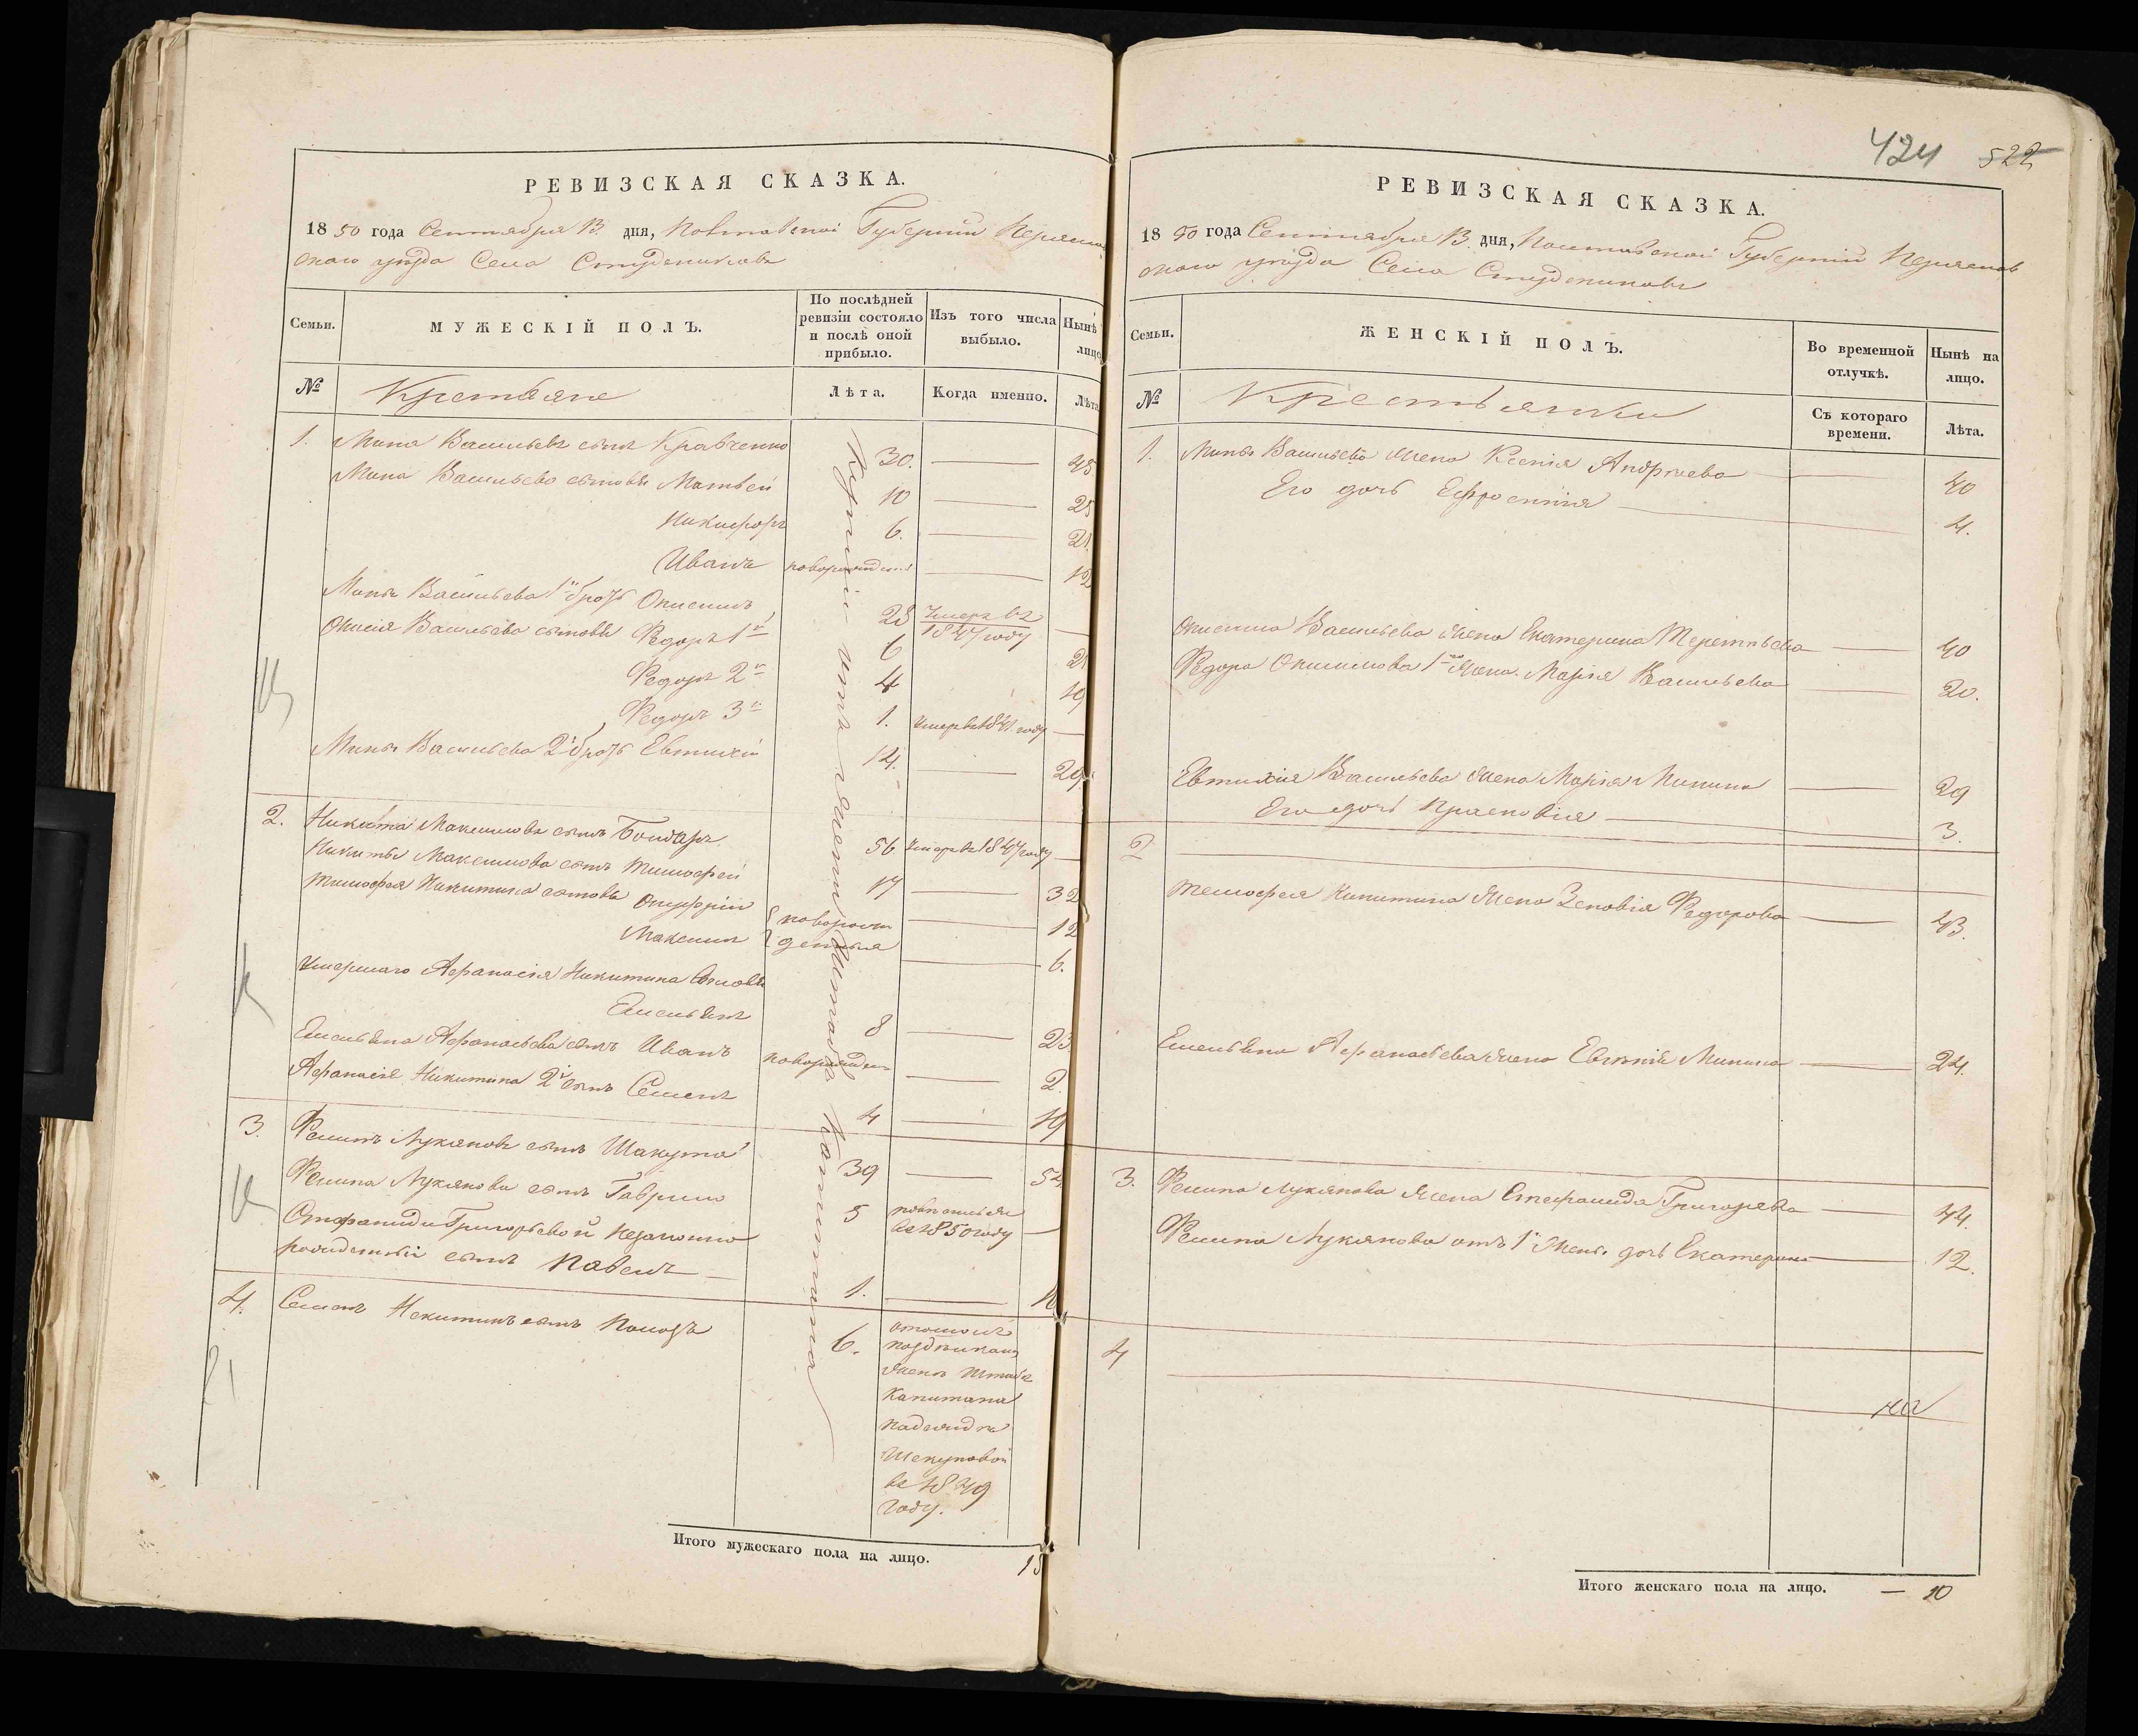 РЕВИЗСКАЯ СКАЗКА.
1850 года Сентября В. дня, Полтавской Губернии
скаго уезда Села Студениковъ
Семьи.
МУЖЕСКІЙ ПОЛЪ.
По послѣдней
ревизіи состояло
и послѣ оной
прибыло.
Изъ того числа
выбыло.
Нынѣ
лицо
№
Крестьяне
Лѣта.
Когда именно.
Лѣта
Купній изъ
Капитана
1. Мина Васильевъ сынъ Кравченко 30. — 45
Мина Васильева сыновья Матвей 10 — 25
Никифоръ 6. — 21.
Иванъ новорожден — 12
Мины Васильева 1й братъ Онисимъ 28 Умеръ въ 1847 году —
Онисія Васильева сыновья Федоръ 1й 6 21
Федоръ 2й 4 19
Федоръ 3й 1. Умеръ въ 1841 году —
Мины Васильева 2й братъ Евтихій 14. — 29.
2. Никита Максимовъ сынъ Бондарь 56 Умеръ въ 1847 году —
Никиты Максимова сынъ Тимофей 17 — 32
Тимофея Никитина сыновья Онуфрій — 12
Максимъ новорож
денныя — 6.
Умершаго Афанасія Никитина сыновья
Емельянъ 8 — 23.
Емельяна Афанасьева сынъ Иванъ новорожден — 2.
Афанасія Никитина 2й сынъ Семенъ 4 — 19
3. Филипъ Лукяновъ сынъ Шакута 39 — 54.
Филипа Лукянова сынъ Гаврило 5
въ 1850 году —
Стефаниды Григорьевой незаконно
рожденный сынъ Павелъ — 1. — 16
4. Семенъ Никитинъ сынъ 6.
жены Штабсъ
Капитана
въ 1849
году.
Итого мужескаго пола на лицо. 15
424 522
РЕВИЗСКАЯ СКАЗКА.
1850 года Сентября В. дня, Полтавской Губерніи
скаго уезда Села Студениковъ
Семьи.
ЖЕНСКІЙ ПОЛЪ.
Во временной
отлучкѣ.
Нынѣ на
лицо.
№
Крестьянки
Съ котораго
времени.
Лѣта.
1. Мины Васильева жена Ксенія Андреева — 40
Его дочь Ефросинія — 4.
Онисима Васильева жена Екатерина Терентьева — 40
Федора Онисимова 1го жена Марія Васильева — 20.
Евтихія Васильева жена Марія Минина — 29
Его дочь Прасковія — 3.
2 —
Тимофея Никитина жена Зеновія Федорова — 43.
Емельяна Афанасьева жена Евгенія Минина — 24.
3. Филипа Лукянова жена Стефанида Григорьева — 44.
Филипа Лукянова отъ 1й жены дочь Екатерина — 12.
4
Итого женскаго пола на лицо. — 10